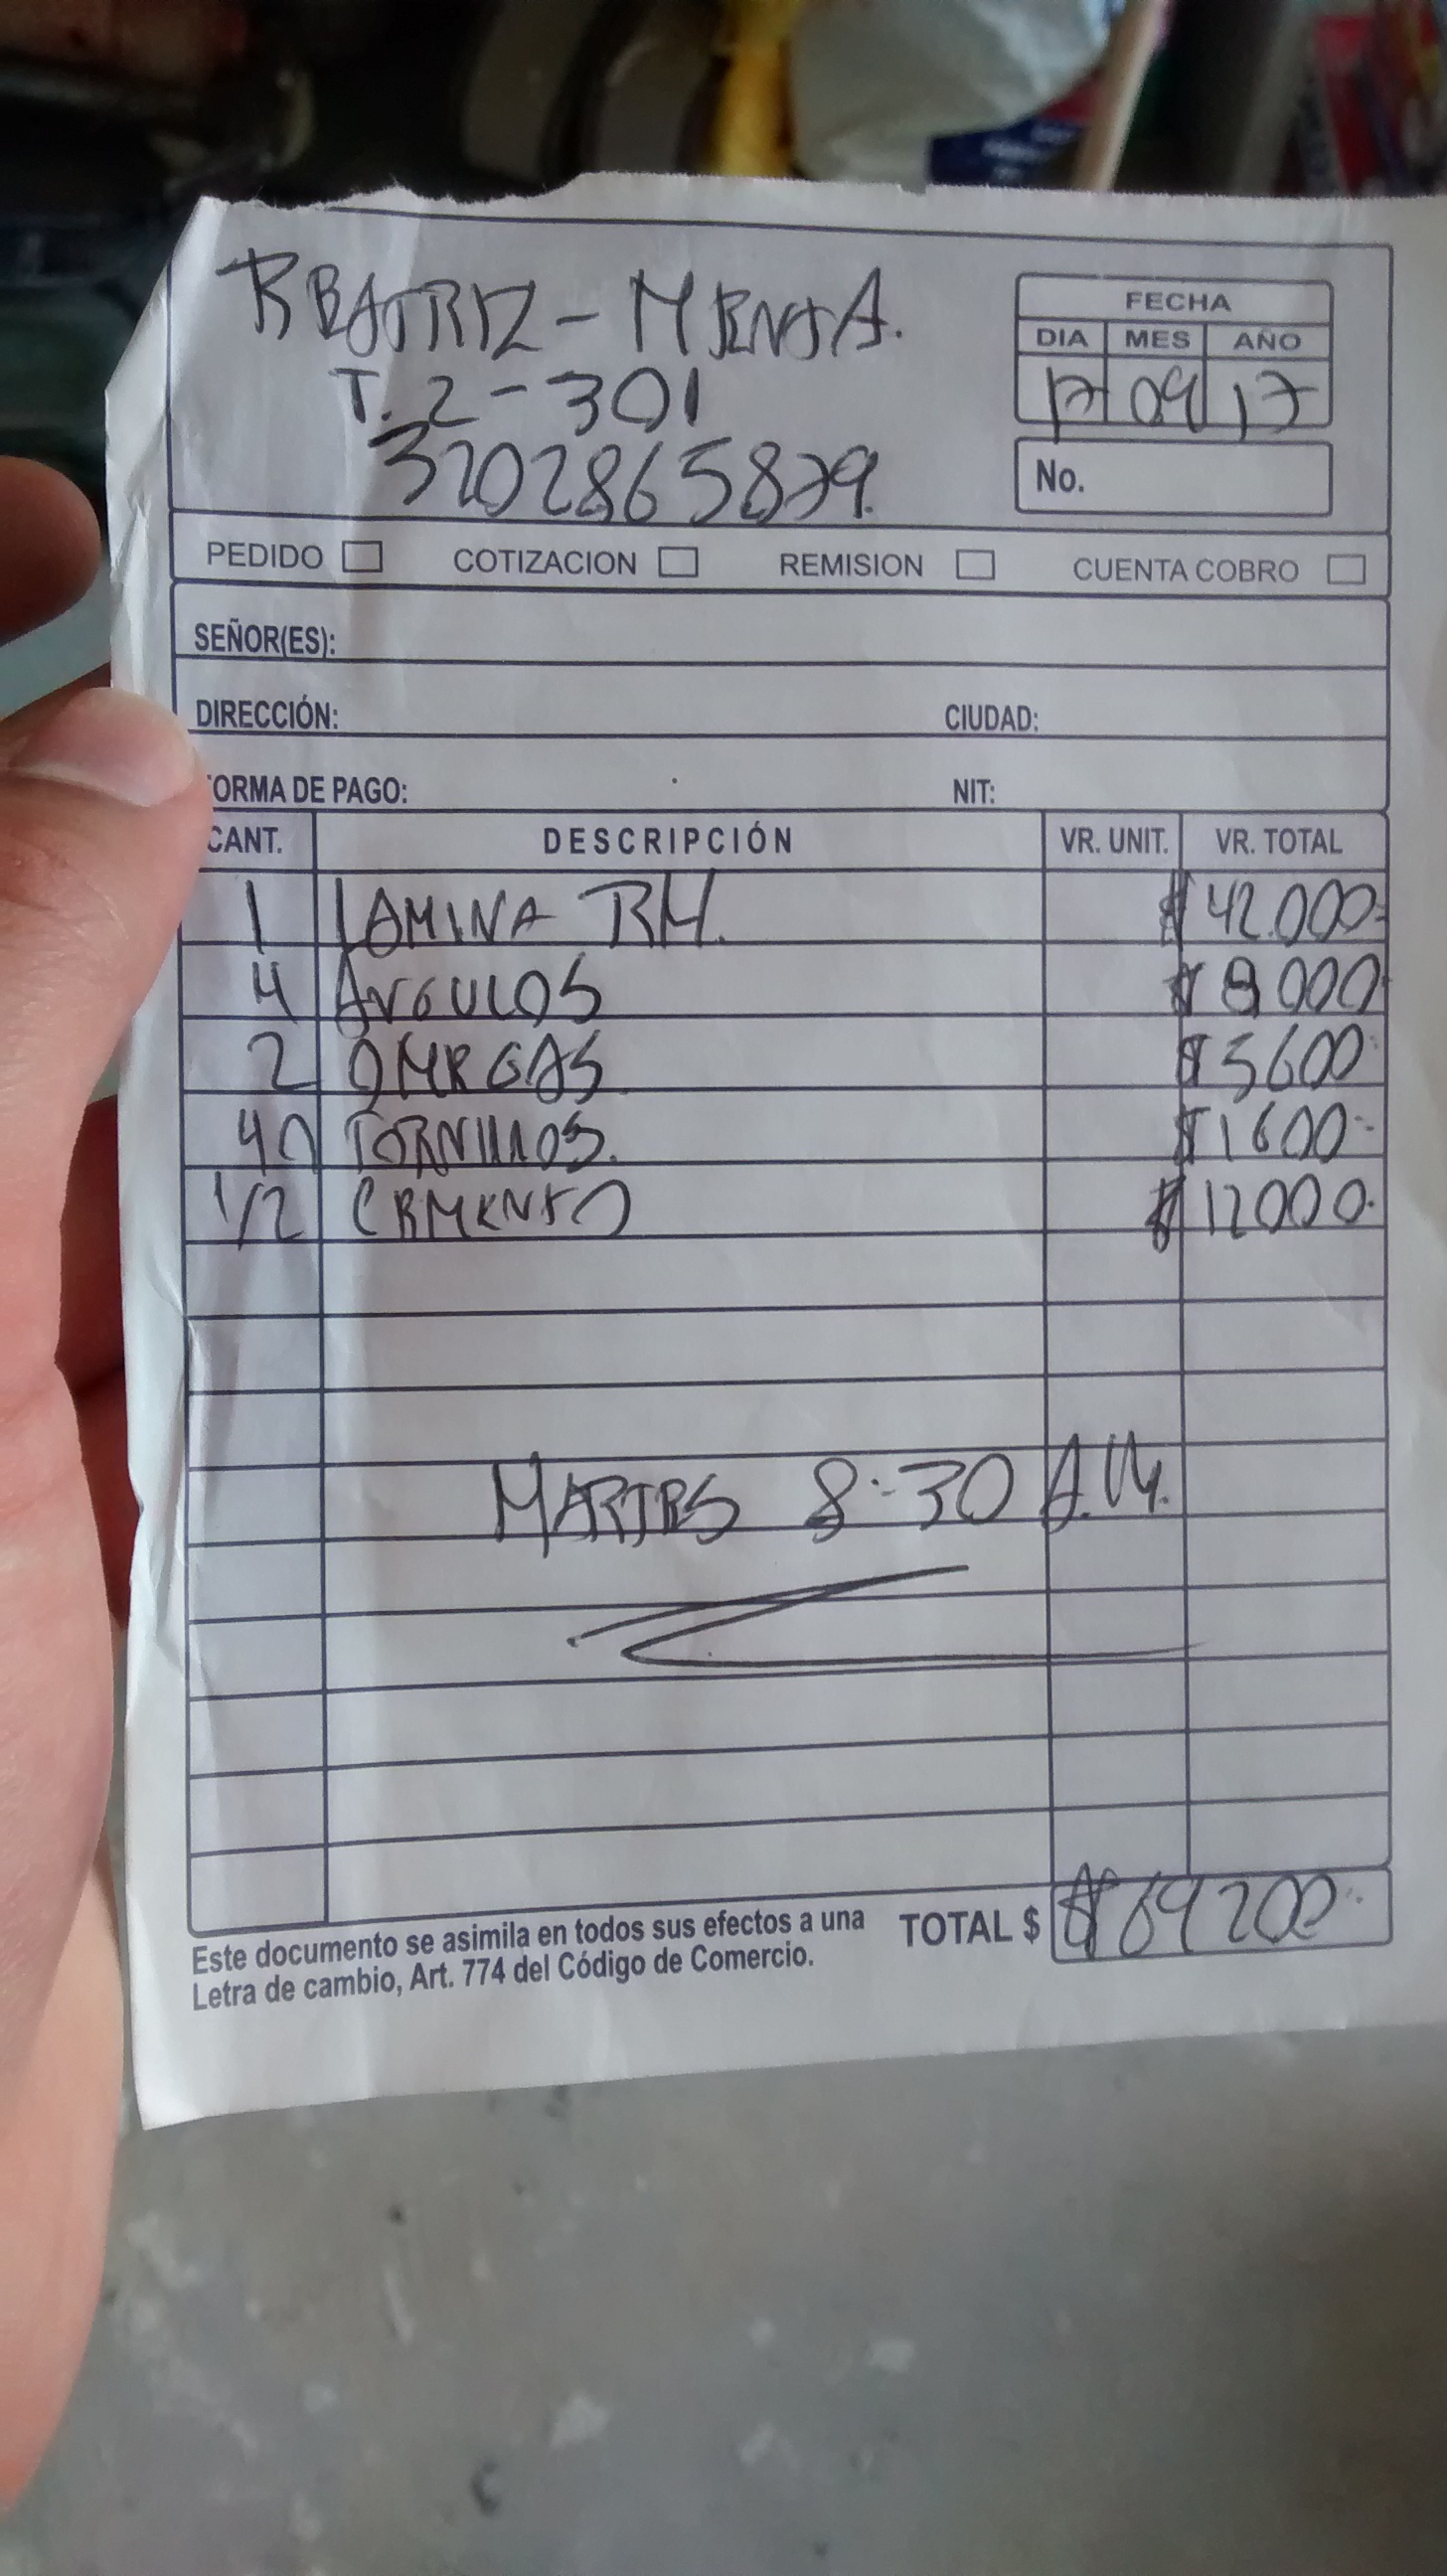 BEATRIZ - MENTA.
T. 2 - 301
3202865879.
FECHA
DIA MES AÑO
17 09 17
No.
PEDIDO COTIZACION REMISION CUENTA COBRO
SEÑOR(ES):
DIRECCIÓN: CIUDAD:
ORMA DE PAGO: NIT:
CANT. DESCRIPCIÓN VR. UNIT. VR. TOTAL
1 LAMINA RH. $ 42.000
4 ANGULOS $ 8000
2 OMEGAS $ 5600
40 TORNILLOS. $ 1600
1/2 CEMENTO $ 12000.
MARTES 8:30 A.M.
Este documento se asimila en todos sus efectos a una
Letra de cambio, Art. 774 del Código de Comercio.
TOTAL $ $ 69200